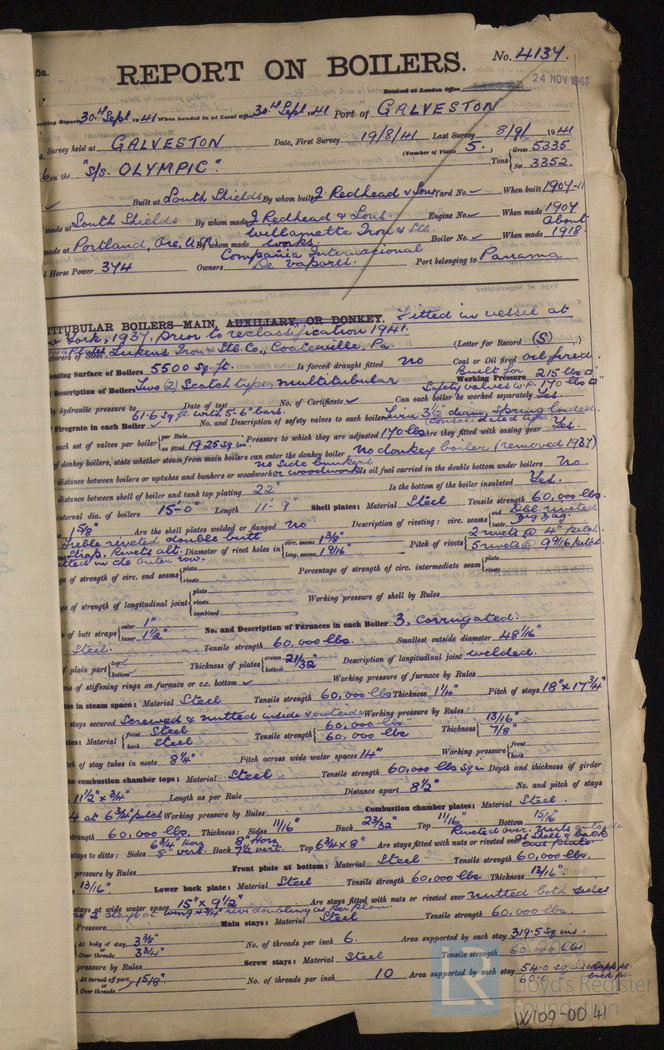 5a.
REPORT ON BOILERS.
No. 4134.
Received at London Office
24 NOV 1941
writing Report 30th Sept. 1941 When handed in at Local Office 30th Sept. 41 Port of GALVESTON
Survey held at GALVESTON Date, First Survey 19/8/41 Last Survey 8/9/ 1941
on the "S/S. OLYMPIC". (Number of Visits 5.) Tons { Gross 5335 Net 3352.
Built at South Shields By whom built J. Redhead & Sons Yard No. ✓ When built 1907-11
made at South Shields By whom made J Redhead & Sons. Engine No. ✓ When made 1907
made at Portland, Ore, U.S.A. By whom made Willamette Iron & Stl. works. Boiler No. ✓ When made About 1918
l Horse Power 374 Owners Compañia Internacional De Vapores. Port belonging to Panama
TITUBULAR BOILERS—MAIN, AUXILIARY, OR DONKEY. Fitted in vessel at
York, 1937. prior to reclassification 1941.
cturers of Steel Lukens Iron & Stl. Co., Coatesville, Pa. (Letter for Record (S) )
eating Surface of Boilers 5500 sq. ft. Is forced draught fitted no Coal or Oil fired oil fired.
Description of Boilers Two (2) Scotch type, multitubular Working Pressure Built for 215 lbs □"
Safety valves w.p. 170 lbs □"
by hydraulic pressure to Date of test No. of Certificate ✓ Can each boiler be worked separately Yes.
Firegrate in each Boiler 61.6 sq ft. with 5'-6" bars. No. and Description of safety valves to each boiler Twin 3½" diam, spring loaded. Consolidated type
each set of valves per boiler { per Rule as fitted 19.25 sq in. Pressure to which they are adjusted 170 lbs Are they fitted with easing gear Yes.
of donkey boilers, state whether steam from main boilers can enter the donkey boiler no donkey boiler (removed 1937)
distance between boilers or uptakes and bunkers or woodwork no side bunkers or woodwork Is oil fuel carried in the double bottom under boilers No.
distance between shell of boiler and tank top plating 22" Is the bottom of the boiler insulated Yes.
internal dia. of boilers 15-0" Length 11-9" Shell plates: Material Steel Tensile strength 60,000 lbs.
1 5/8" Are the shell plates welded or flanged no Description of riveting: circ. seams { Dbl. riveted zig zag.
Treble riveted double butt Straps. Rivets alt. Diameter of rivet holes in { circ. seams 1 3/8" long. seams 1 9/16" Pitch of rivets { 2 rivets @ 4" pitch 5 rivets @ 9 9/16 pitch.
itted in the outer row.
ge of strength of circ. end seams { plate rivets Percentage of strength of circ. intermediate seam { plate rivets
ge of strength of longitudinal joint { plate rivets combined Working pressure of shell by Rules
s of butt straps { outer 1" inner 1½" No. and Description of Furnaces in each Boiler 3, corrugated.
Steel. Tensile strength 60,000 lbs. Smallest outside diameter 48 1/16"
f plain part { top bottom Thickness of plates { crown bottom 21/32" Description of longitudinal joint welded.
ns of stiffening rings on furnace or c.c. bottom ✓ Working pressure of furnace by Rules
tes in steam space: Material Steel Tensile strength 60,000 lbs Thickness 1¼" Pitch of stays 18" x 17¾"
stays secured Screwed & nutted inside & outside Working pressure by Rules
tes: Material { front Steel back Steel Tensile strength { 60,000 lbs. 60,000 lbs Thickness { 13/16" 7/8"
tch of stay tubes in nests 8¼" Pitch across wide water spaces 14" Working pressure { front back
to combustion chamber tops: Material Steel Tensile strength 60,000 lbs sq in Depth and thickness of girder
11½" x ¾" Length as per Rule Distance apart 8½" No. and pitch of stays
4 at 6¾" pitch Working pressure by Rules Combustion chamber plates: Material Steel.
strength 60,000 lbs. Thickness: Sides 11/16" Back 23/32" Top 11/16" Bottom 15/16"
stays to ditto: Sides 6¾" Horz 8" vert. Back 8" Horz 7½ vert. Top 6¾ x 8" Are stays fitted with nuts or riveted over Riveted over. Nuts
pressure by Rules Front plate at bottom: Material Steel Tensile strength 60,000 lbs.
13/16" Lower back plate: Material Steel Tensile strength 60,000 lbs Thickness 13/16"
stays at wide water space 15" x 9½" Are stays fitted with nuts or riveted over nutted both sides
Pressure Main stays: Material Steel Tensile strength 60,000 lbs.
At body of stay, 3⅜" or Over threads 3¾" No. of threads per inch 6. Area supported by each stay 319.5 sq ins.
pressure by Rules Screw stays: Material Steel Tensile strength 60,000 lbs
At turned off part, or Over threads 1 5/8" No. of threads per inch 10 Area supported by each stay 54.0 sq ins
LR Lloyd's Register Foundation
W109-0041